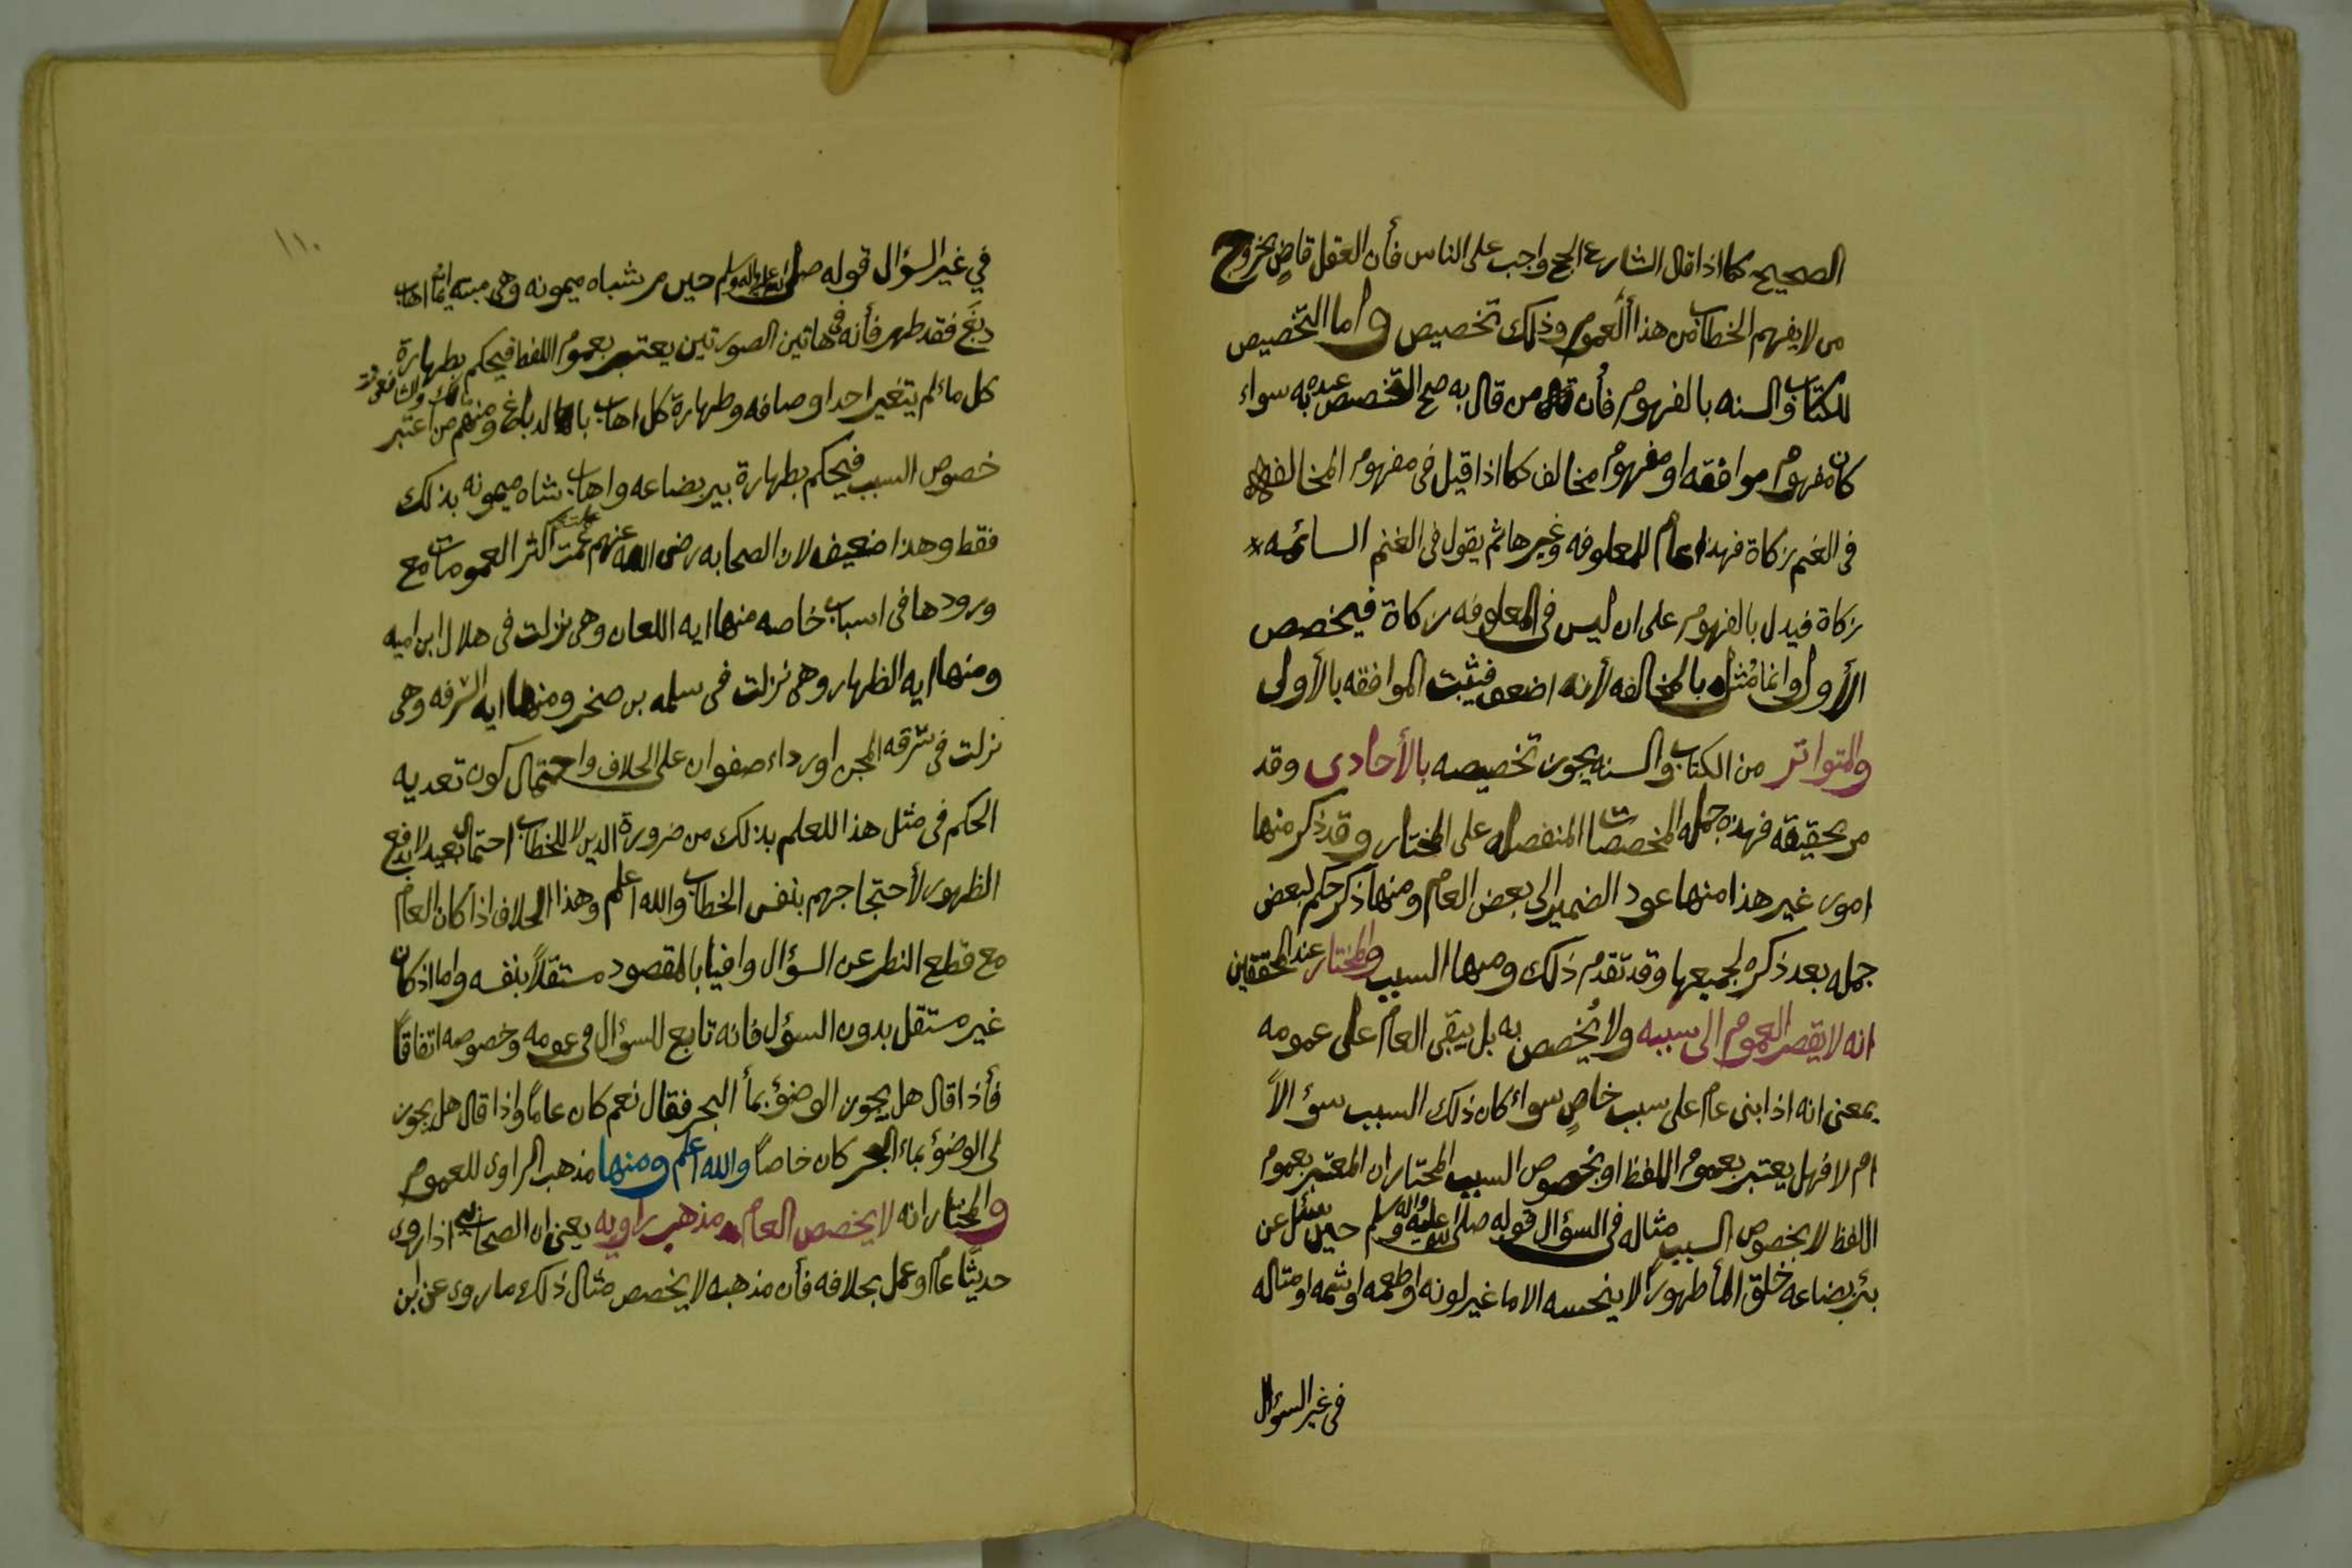 الصحيح كما اذا قال الشارع الحج واجب على الناس فأن العقل قاضٍ بخروج
من لا يفهم الخطاب من هذا العموم وذلك تخصيص واما التخصيص
للكتاب والسنه بالمفهوم فأن من قال به صح التخصيص عنده به سواء
كان مفهوم موافقه او مفهوم مخالف كما اذا قيل في مفهوم المخالفه
في الغنم زكاة فهذا عام للمعلوفه وغيرها ثم يقول في الغنم السائمه
زكاة فيدل بالمفهوم على ان ليس في المعلوفه زكاة فيخصص
الأول وانما مُثل بالمخالفه لأنه اضعف فيثبت الموافقه بالأولى
والمتواتر من الكتاب والسنه يجوز تخصيصه بالأحادى وقد
مر تحقيقه فهذه جمله المخصصات المنفصله على المختار وقد ذكر منها
امور غير هذا منها عود الضمير الى بعض العام ومنها ذكر حكم لبعض
جمله بعد ذكره لجميعها وقد تقدم ذلك ومنها السبب والمختار عند المحققين
انه لا يقصر العموم الى سببه ولا يُخصص به بل يبقى العام على عمومه
بمعنى انه اذا بنى عام على سبب خاصٍ سواءً كان ذلك السبب سؤالاً
ام لا فهل يعتبر بعموم اللفظ او بخصوص السبب المختار ان المعتبر بعموم
اللفظ لا بخصوص السبب مثاله في السؤال قوله صلى الله عليه واله وسلم حين سئل عن
بئر بضاعه خلق المأ طهوراً لا ينجسه الا ما غير لونه او طعمه او شمه او مثاله
في غير السؤال
١١٠
في غير السؤال قوله صلى الله عليه واله وسلم حين مر بشاه ميمونه وهى ميته ايما اهاب
دبغ فقد طهر فأنه في هاتين الصورتين يعتبر بعموم اللفظ فيحكم بطهارة
كل ماءٍ لم يتغير احد اوصافه وطهارة كل اهاب بالدباغ ومنهم من اعتبر
خصوص السبب فيحكم بطهارة بير بضاعه واهاب شاه ميمونه بذلك
فقط وهذا ضعيف لان الصحابه رضى الله عنهم عممت اكثر العمومات مع
ورودها فى اسباب خاصه منها ايه اللعان وهى نزلت فى هلال ابن اميه
ومنها ايه الظهار وهى نزلت فى سلمه بن صخر ومنها ايه السرقه وهى
نزلت فى سرقه المجن او رداء صفوان على الخلاف واحتمال كون تعديه
الحكم فى مثل هذا للعلم بذلك من ضرورة الدين لا للخطاب احتمال بعيد لا يدفع
الظهور لأحتجاجهم بنفس الخطاب والله اعلم وهذا الخلاف اذا كان العام
مع قطع النظر عن السؤال وافياً بالمقصود مستقلاً بنفسه واما اذا كان
غير مستقل بدون السؤل فانه تابع للسؤال فى عمومه وخصوصه اتفاقاً
فأذا قال هل يجوز الوضؤ بمأ البحر فقال نعم كان عاماً واذا قال هل يجوز
لى الوضؤ بماء البحر كان خاصاً والله اعلم ومنها مذهب الراوى للعموم
والمختار انه لا يخصص العام بمذهب راويه يعنى ان الصحابى اذا روى
حديثاً عاماً وعمل بخلافه فأن مذهبه لا يخصص مثال ذلك ما روى عن ابن